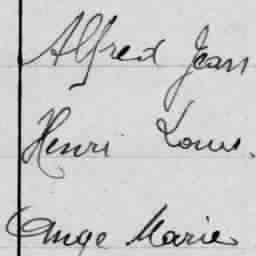 Alfred Jean
Henri Louis.
Ange Marie